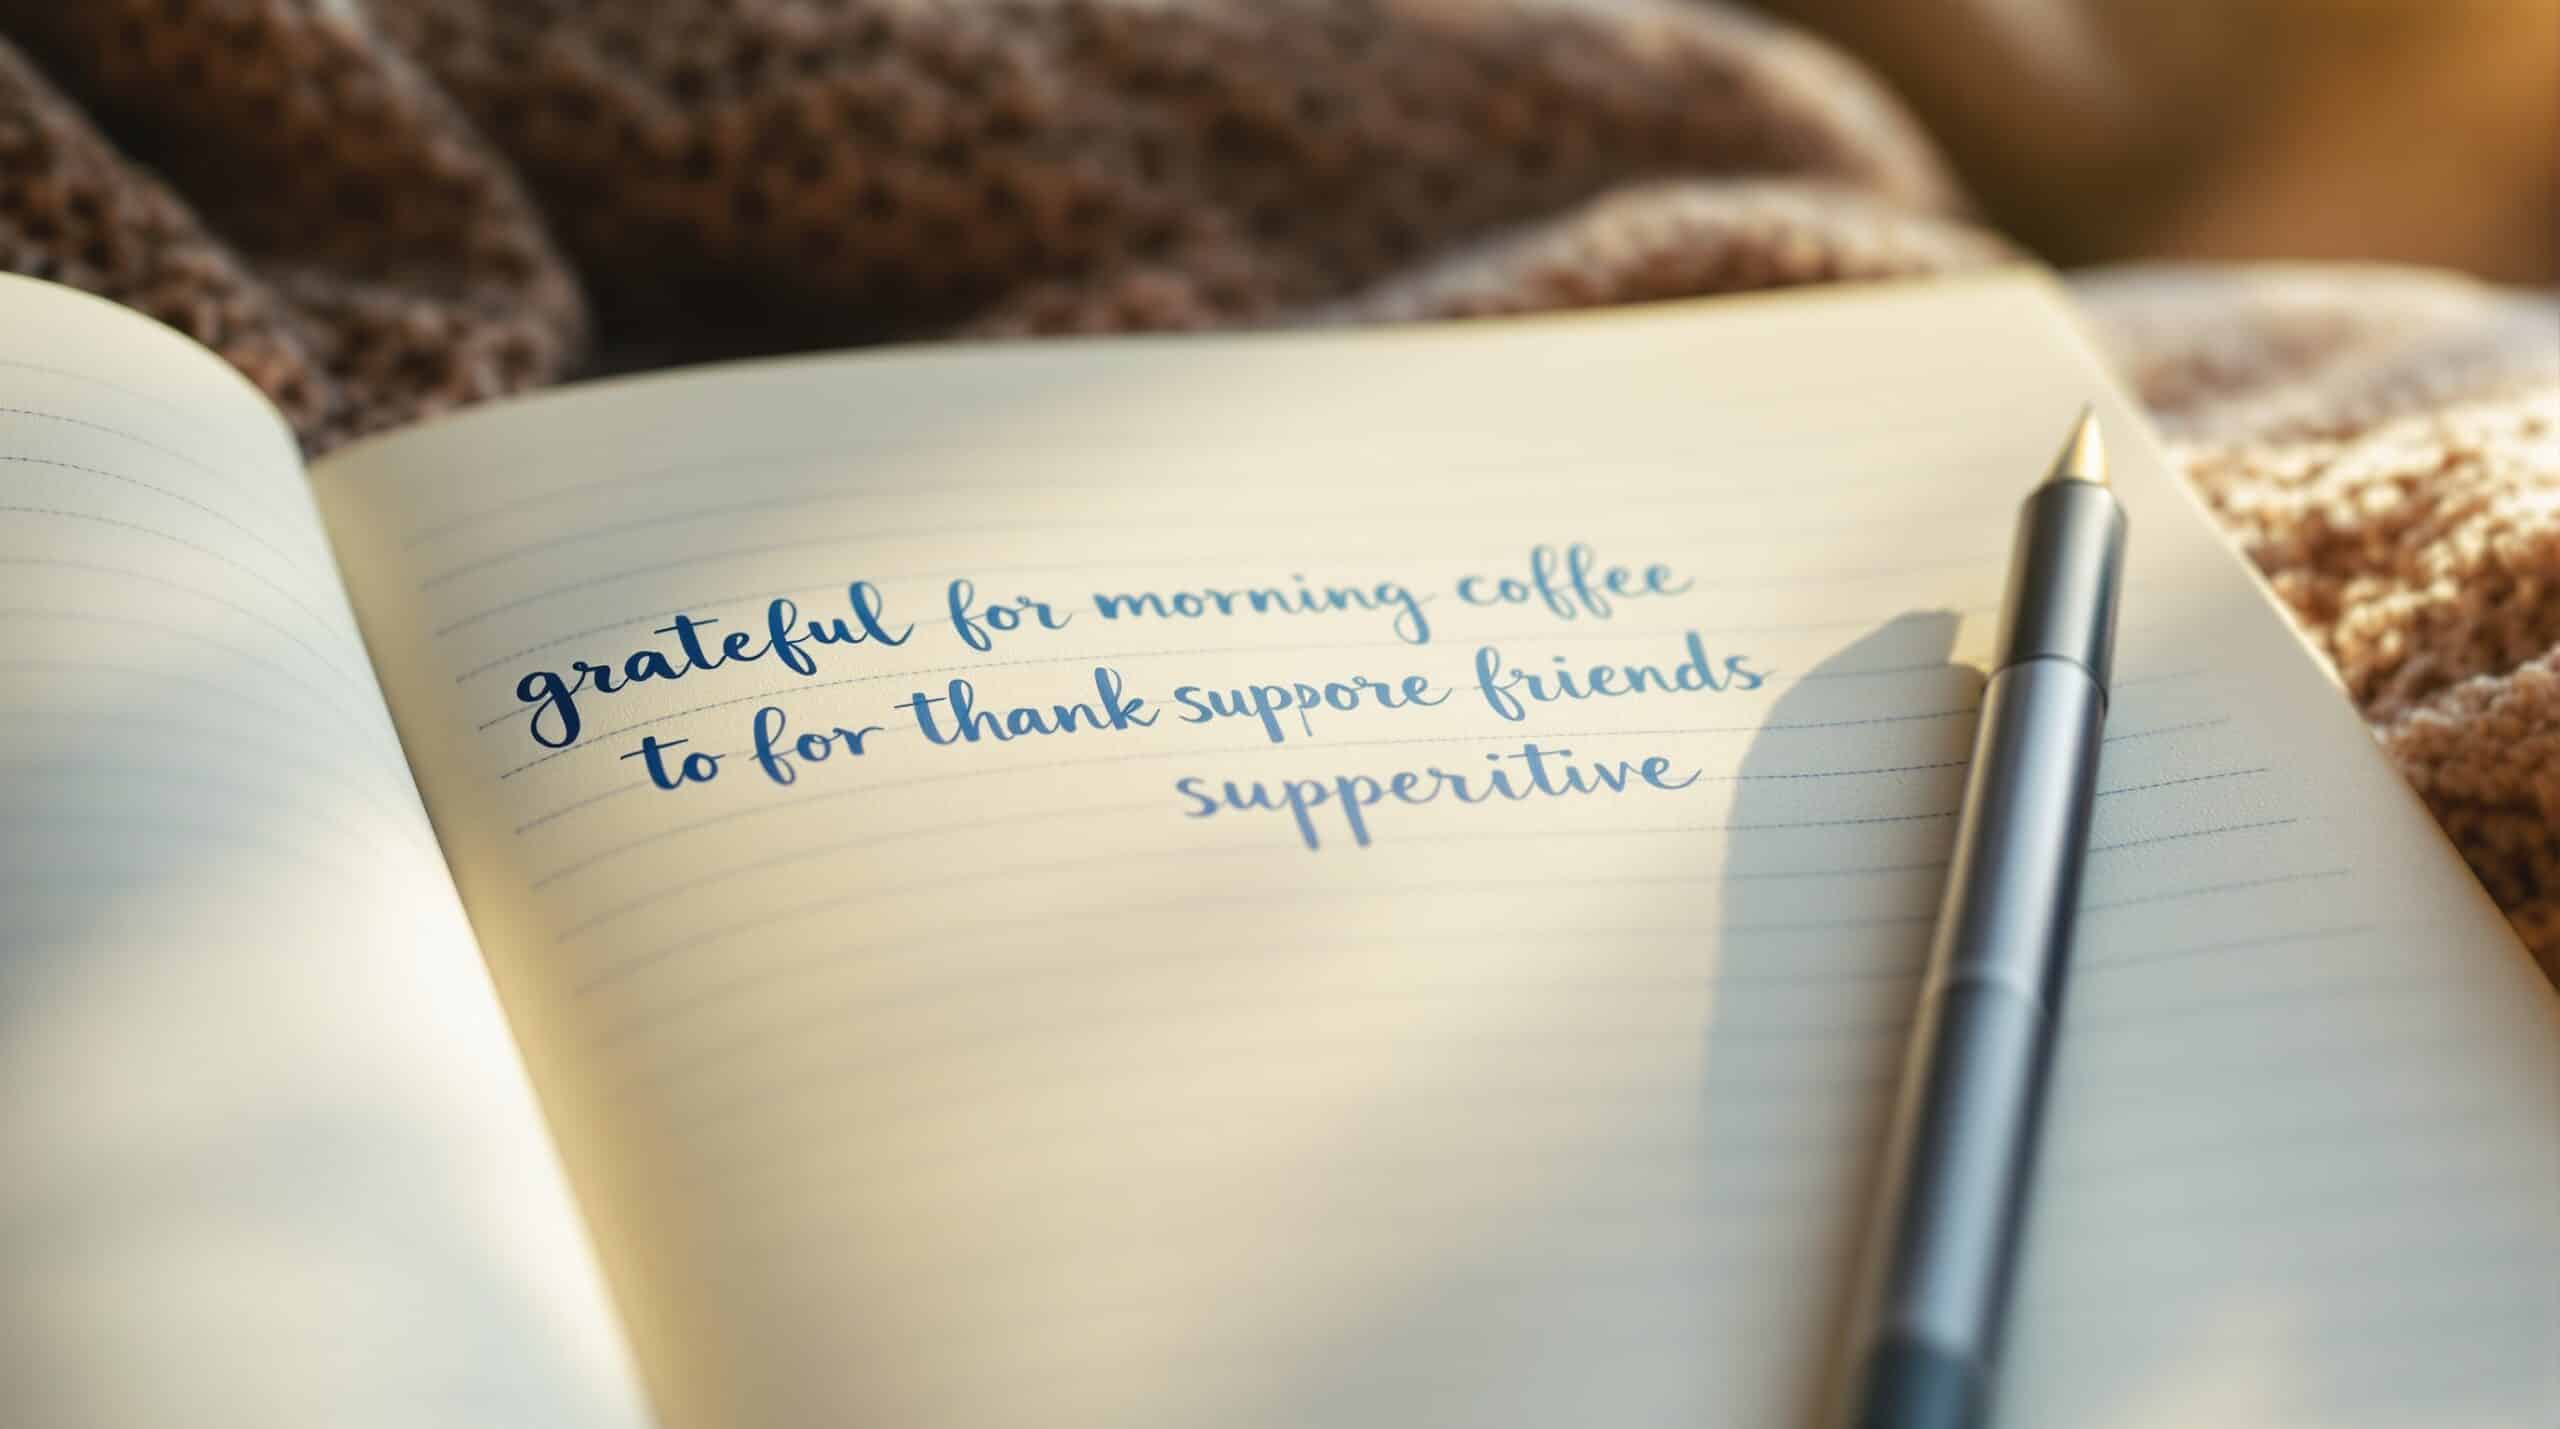 grateful for morning coffee
to for thank suppore friends
supperitive